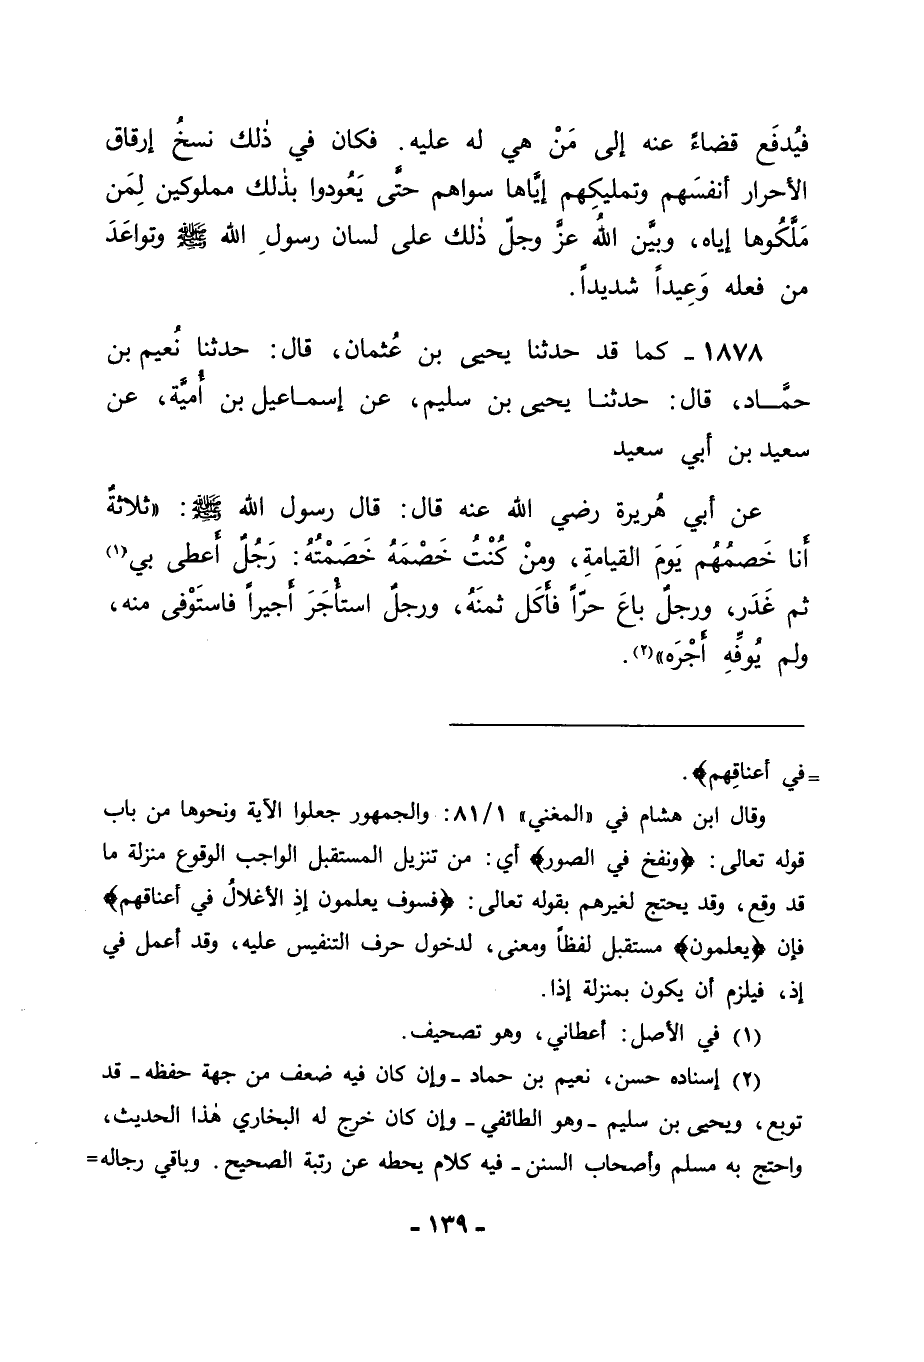 فيُدفَع قضاءً عنه إلى مَنْ هي له عليه. فكان في ذٰلك نسخُ إرقاق
الأحرار أنفسَهم وتمليكِهم إيَّاها سواهم حتَّى يَعُودوا بذٰلك مملوكين لِمَن
مَلَّكُوها إياه، وبيَّن اللهُ عزَّ وجلّ ذٰلك على لسان رسولِ الله ﷺ وتواعَدَ
من فعله وَعِيداً شديداً.
١٨٧٨ ـ كما قد حدثنا يحيى بن عُثمان، قال: حدثنا نُعيم بن
حمَّـاد، قال: حدثنـا يحيى بن سليم، عن إسمـاعيل بن أُميَّة، عن
سعيد بن أبي سعيد
عن أبي هُريرة رضي الله عنه قال: قال رسول الله ﷺ: «ثلاثةٌ
أَنا خَصمُهُم يَومَ القيامةِ، ومنْ كُنْتُ خَصْمَهُ خَصَمْتُهُ: رَجُلٌ أَعطى بي(١)
ثم غَدَر، ورجلٌ باعَ حرّاً فأَكَل ثمنَهُ، ورجلٌ استأْجَرَ أَجيراً فاستَوْفى منه،
ولم يُوفِّهِ أَجْرَه»(٢).
=في أعناقِهم﴾.
وقال ابن هشام في «المغني» ٨١/١: والجمهور جعلوا الآية ونحوها من باب
قوله تعالى: ﴿ونفخ في الصور﴾ أي: من تنزيل المستقبل الواجب الوقوع منزلة ما
قد وقع، وقد يحتج لغيرهم بقوله تعالى: ﴿فسوف يعلمون إذِ الأغلالُ في أعناقهم﴾
فإن ﴿يعلمون﴾ مستقبل لفظاً ومعنى، لدخول حرف التنفيس عليه، وقد أعمل في
إذ، فيلزم أن يكون بمنزلة إذا.
(١) في الأصل: أعطاني، وهو تصحيف.
(٢) إسناده حسن، نعيم بن حماد ـ وإن كان فيه ضعف من جهة حفظه ـ قد
توبع، ويحيى بن سليم ـ وهو الطائفي ـ وإن كان خرج له البخاري هٰذا الحديث،
واحتج به مسلم وأصحاب السنن ـ فيه كلام يحطه عن رتبة الصحيح. وباقي رجاله=
ـ ١٣٩ ـ